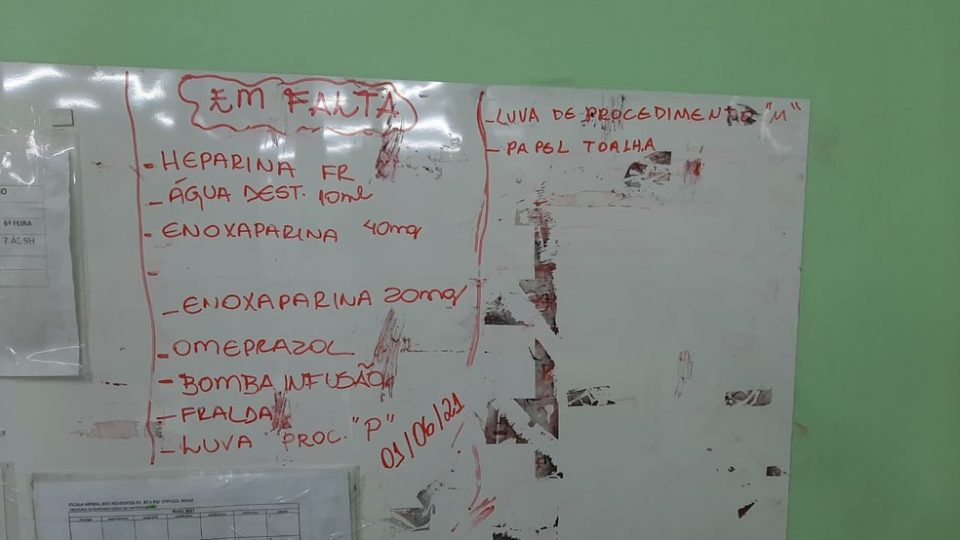 EM FALTA
- HEPARINA FR
- ÁGUA DEST. 10ml
- ENOXAPARINA 40mg
-
- ENOXAPARINA 20mg
- OMEPRAZOL
- BOMBA INFUSÃO
- FRALDA
- LUVA PROC. "P"
01/06/21
- LUVA DE PROCEDIMENTO "M"
- PAPEL TOALHA
6ª FEIRA
7 ÀS 9H
ESCALA MENSAL DOS RESIDENTES